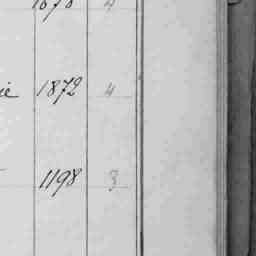 1878 4
ie 1872 4
1198 3